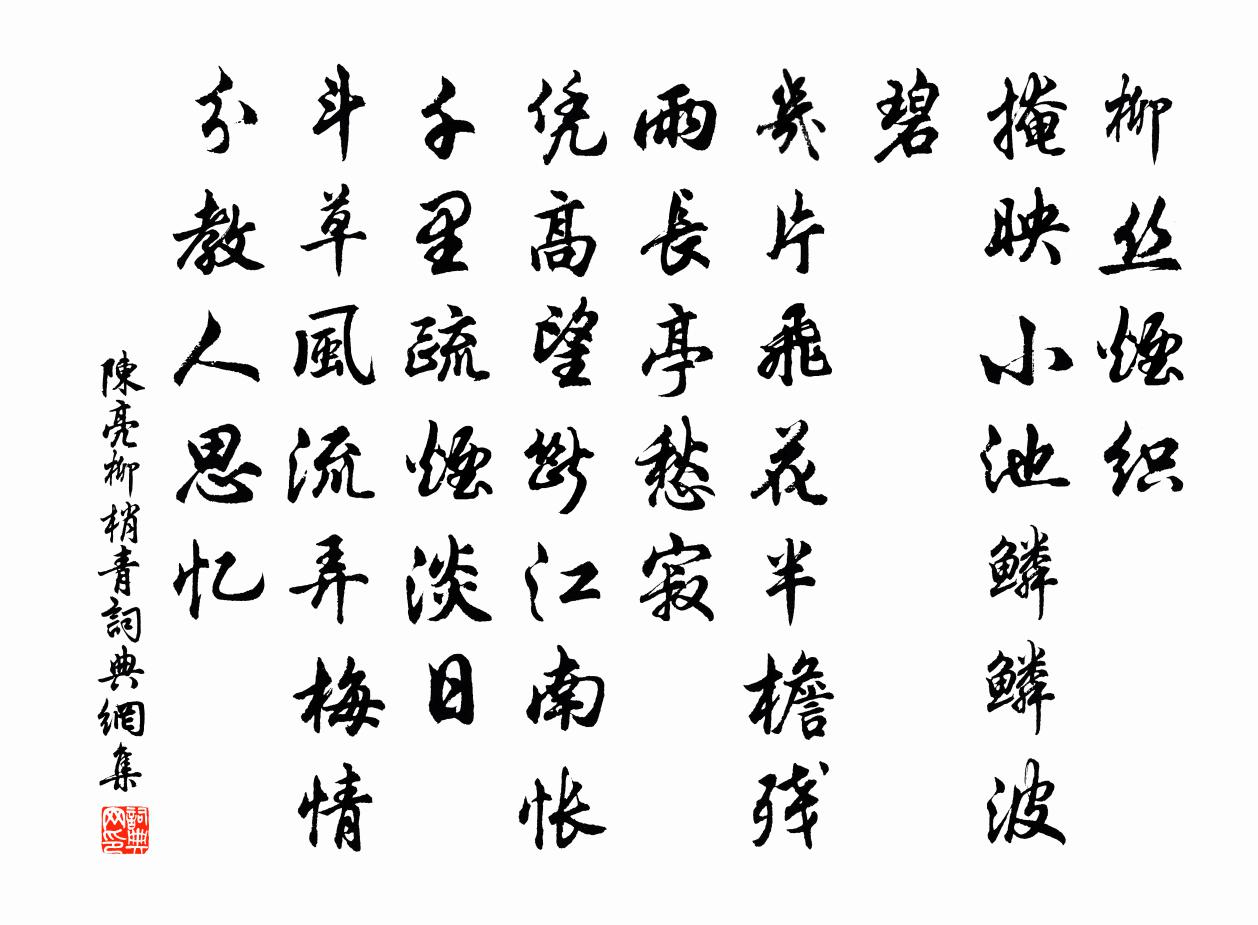 柳丝煙织
掩映小池鳞鳞波
碧
幾片飛花半檐残
雨長亭愁寂
凭高望断江南怅
千里疏煙淡日
斗草風流弄梅情
分教人思忆
陳亮柳梢青詞典網集
詞典网印